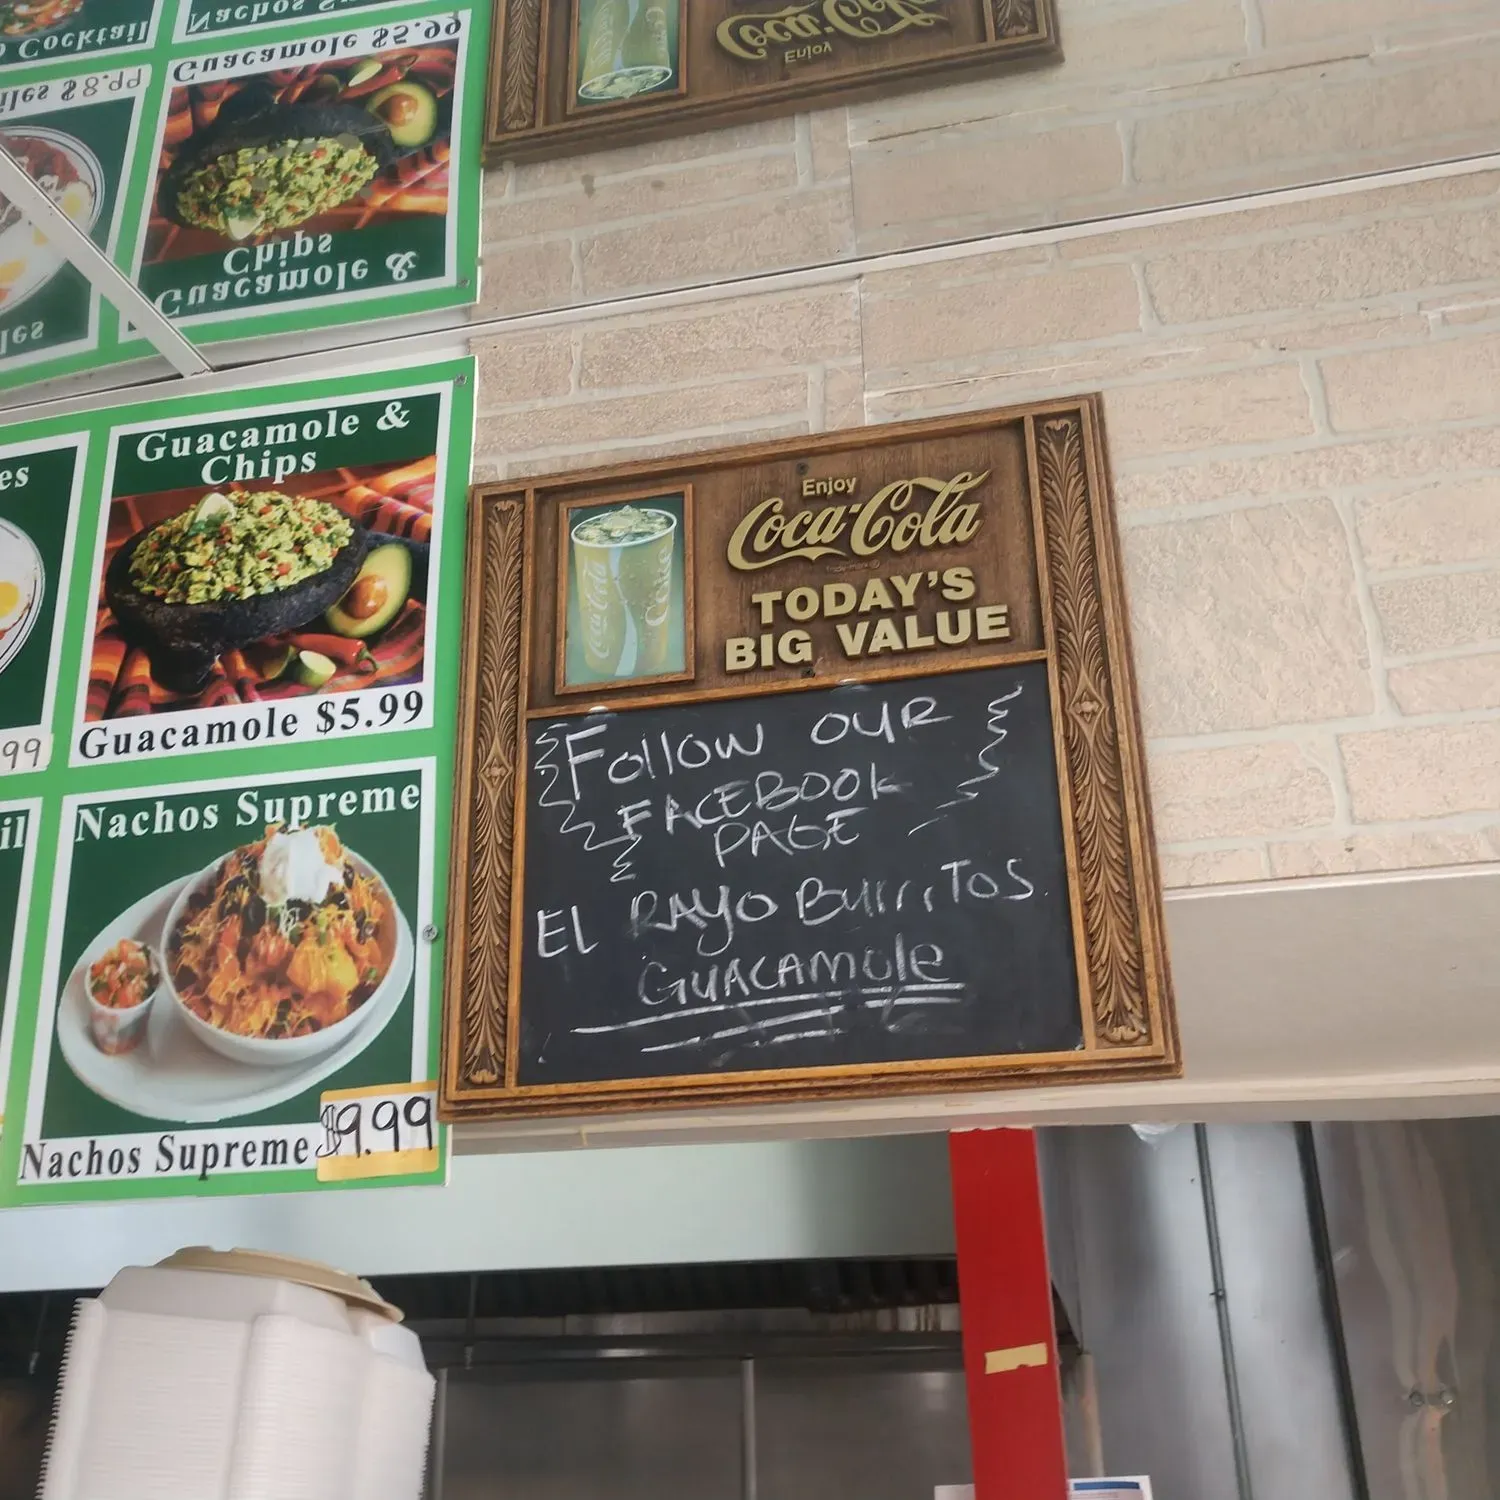 Cocktail
Nachos Su
iles $8.99
Guacamole $5.99
Chips
Guacamole &
les
Enjoy
Coca-Cola
es
99
il
Guacamole &
Chips
Guacamole $5.99
Nachos Supreme
Nachos Supreme $9.99
Enjoy
Coca-Cola
Trade-mark ®
Coca-Cola
Coke
TODAY'S
BIG VALUE
Follow OUR
FACEBOOK
PAGE
EL RAYO BurriTOS.
GUACAMOLE